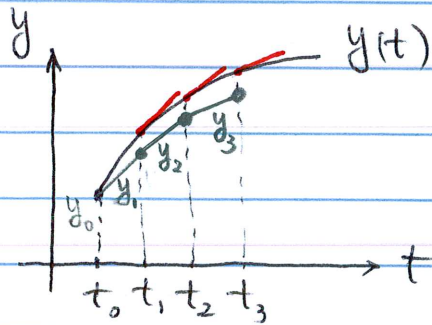 y
y(t)
y₀ y₁ y₂ y₃
t
t₀ t₁ t₂ t₃